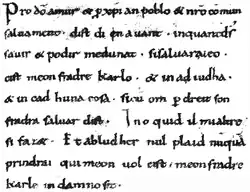 Pro dõ amur & p xpian poblo & nrõ comun
saluament . dist di en auant . inquantds
sauir & podir medunat . sisaluaraieo .
cist meon fradre karlo . & in aiudha .
& in cad huna cosa . sicũ om p dreit son
fradra saluar dist . Ino quid il mialtre
si fazet . Et abludher nul plaid nũquã
prindrai qui meon uol cist . meon fradre
karle in damno sit .